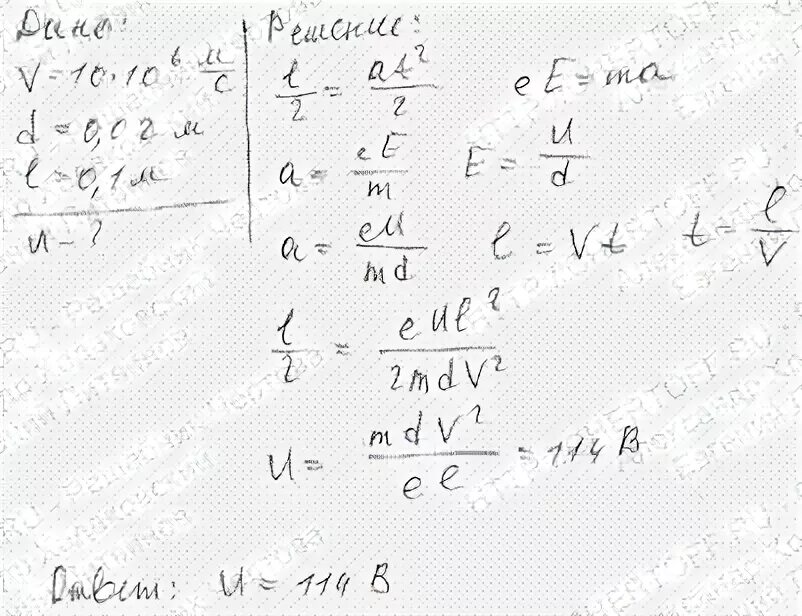 Дано:
V = 10·10⁶ м/с
d = 0,02 м
l = 0,1 м
U - ?
Решение:
l/2 = at²/2 eE = ma
a = eE/m E = U/d
a = eU/md l = Vt t = l/V
l/2 = eUl²/2mdV²
U = mdV²/el = 114 В
Ответ: U = 114 В